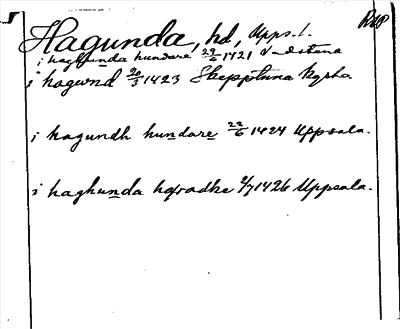 Hagunda, hd, Upps. l.
i haghunda hundare 29/6 1421
i hagwnd 20/3 1423 Skepptuna kyrka
i hagundh hundare 22/6 1424 Uppsala.
i haghunda hæradhe 2/7 1426 Uppsala.